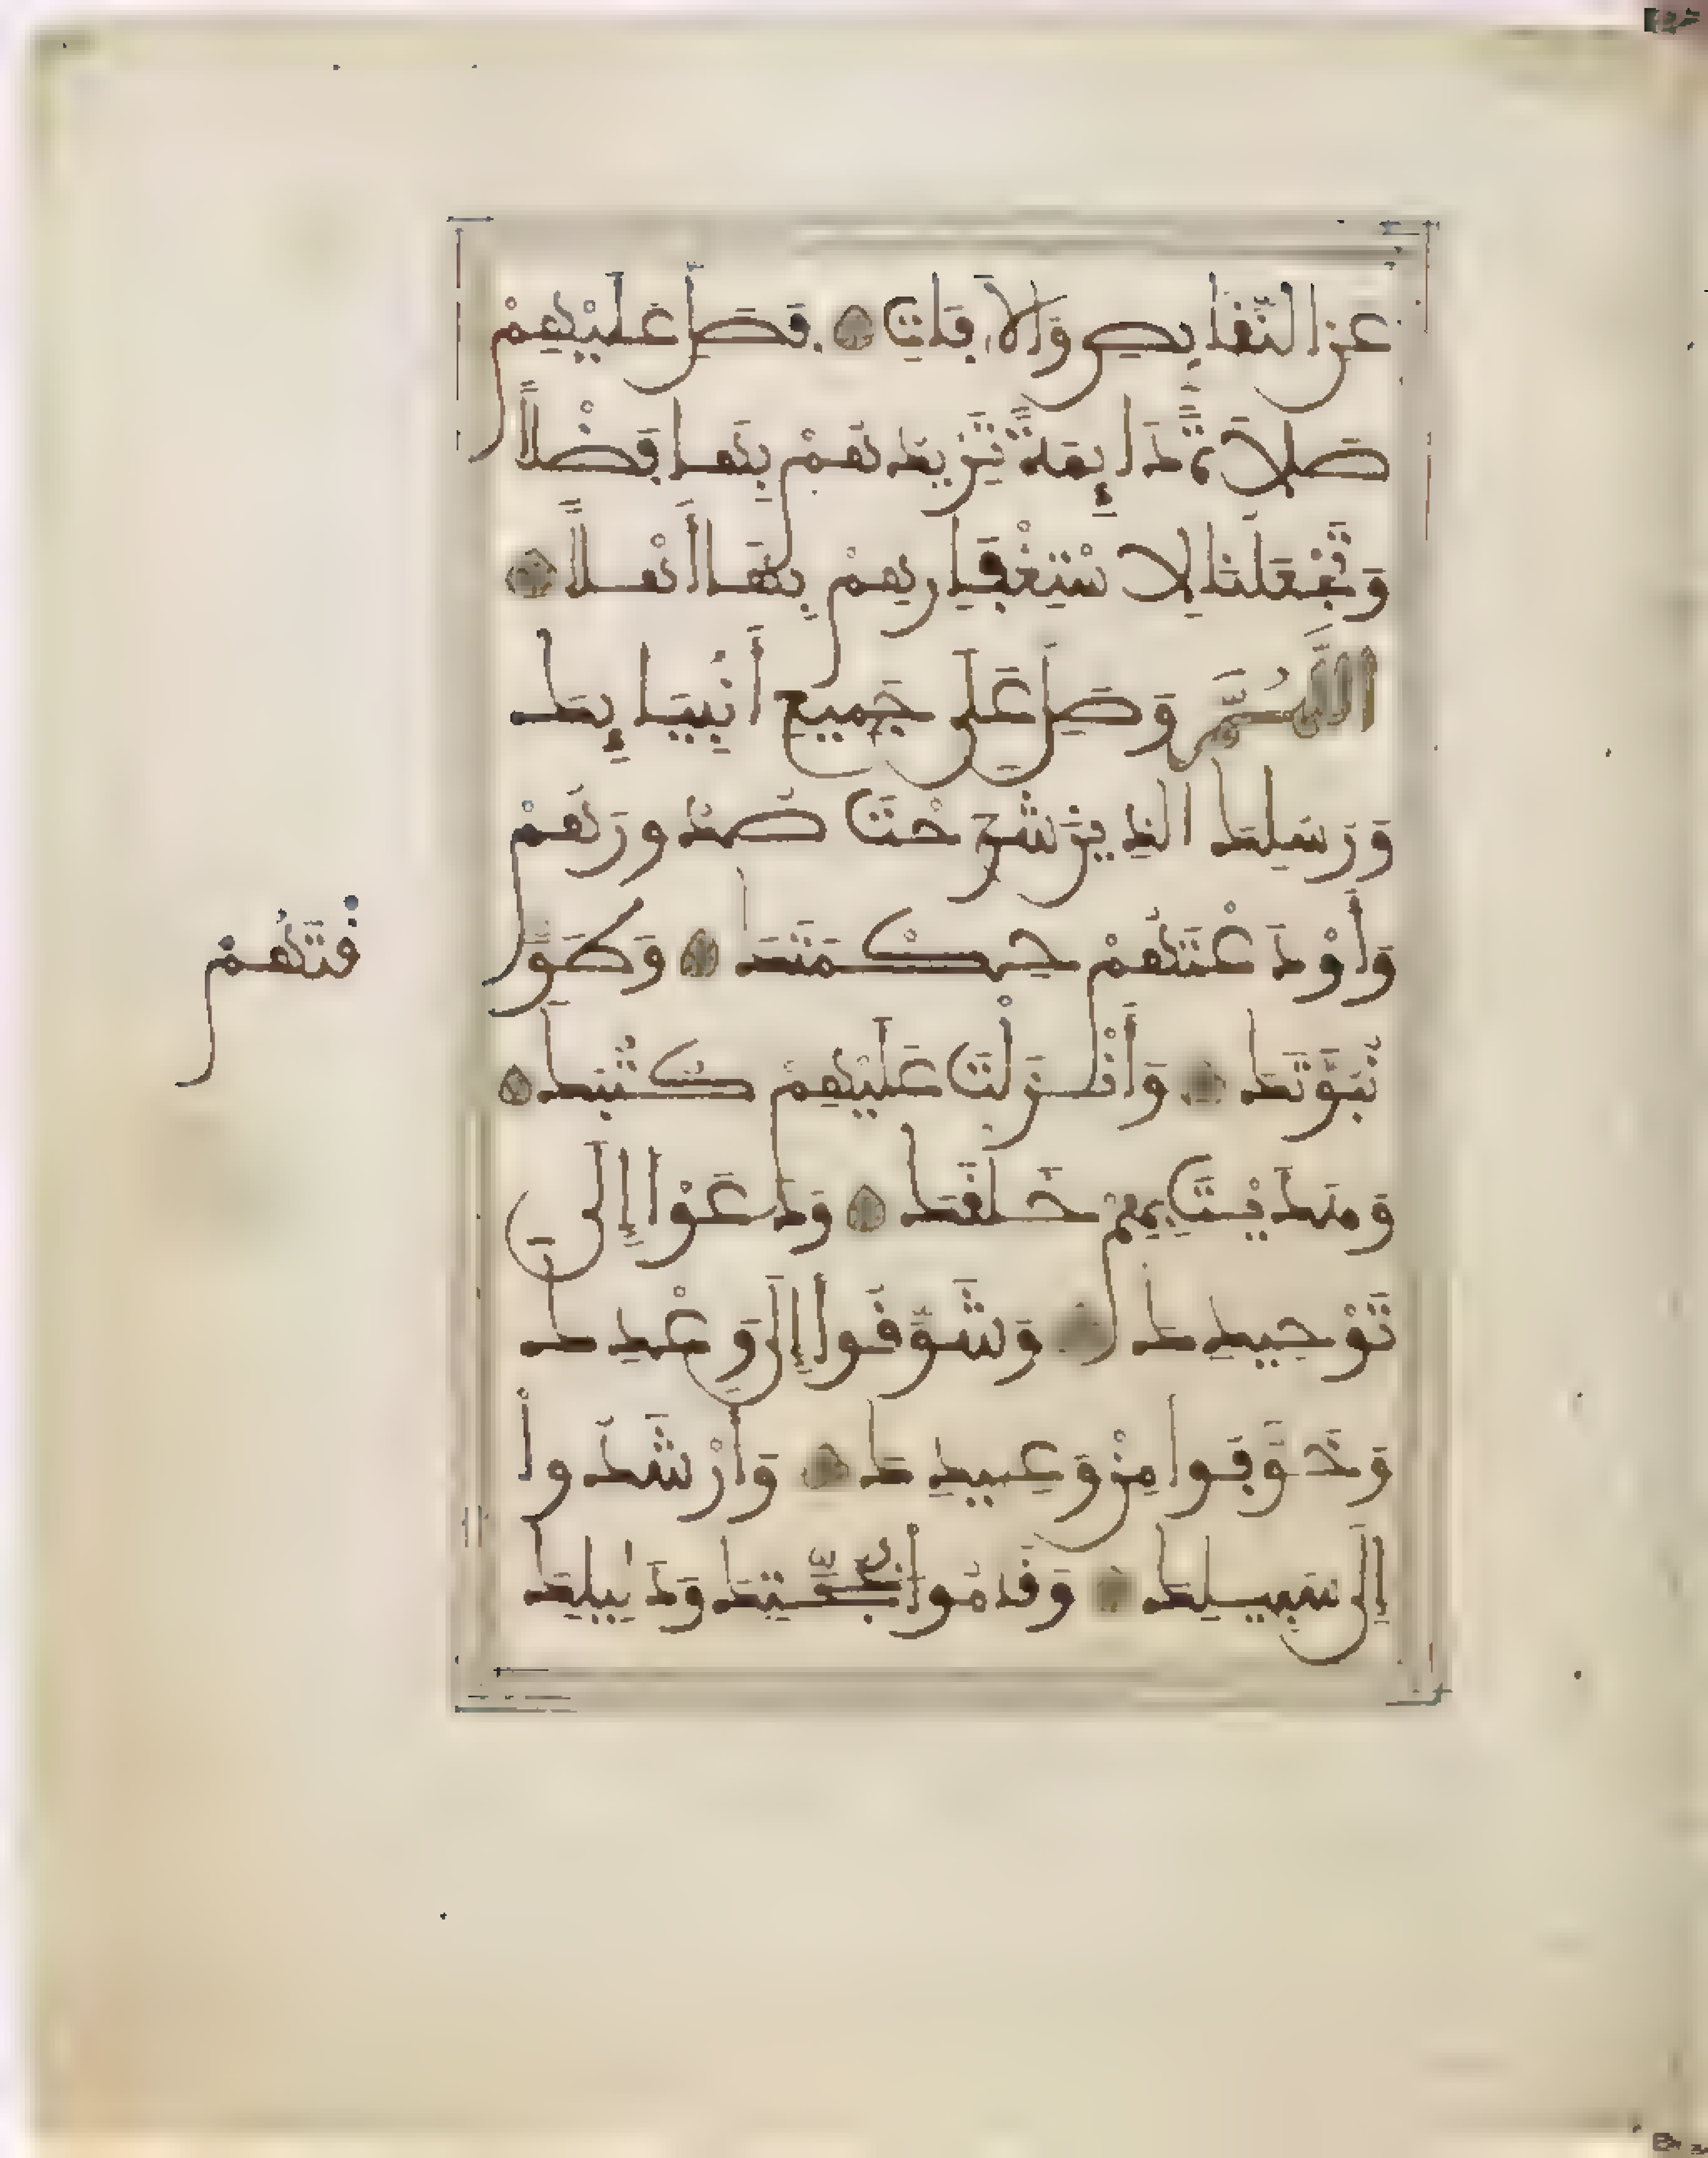 عن النقايص والافات فصل عليهم
صلاة دايمة تزيدهم بها فضلا
وتجعلنا لاستغفارهم بها أهلا
اللهم وصل على جميع أنبيايك
ورسلك الذين شرحت صدورهم
وأودعتهم حكمتك وطوَّ
قتهم
نبوتك وأنزلت عليهم كتبك
وهديت بهم خلقك ودعوا إلى
توحيدك وشوقوا إلى وعدك
وخوفوا من وعيدك وأرشدوا
إلى سبيلك وقاموا بحجتك ودليلك